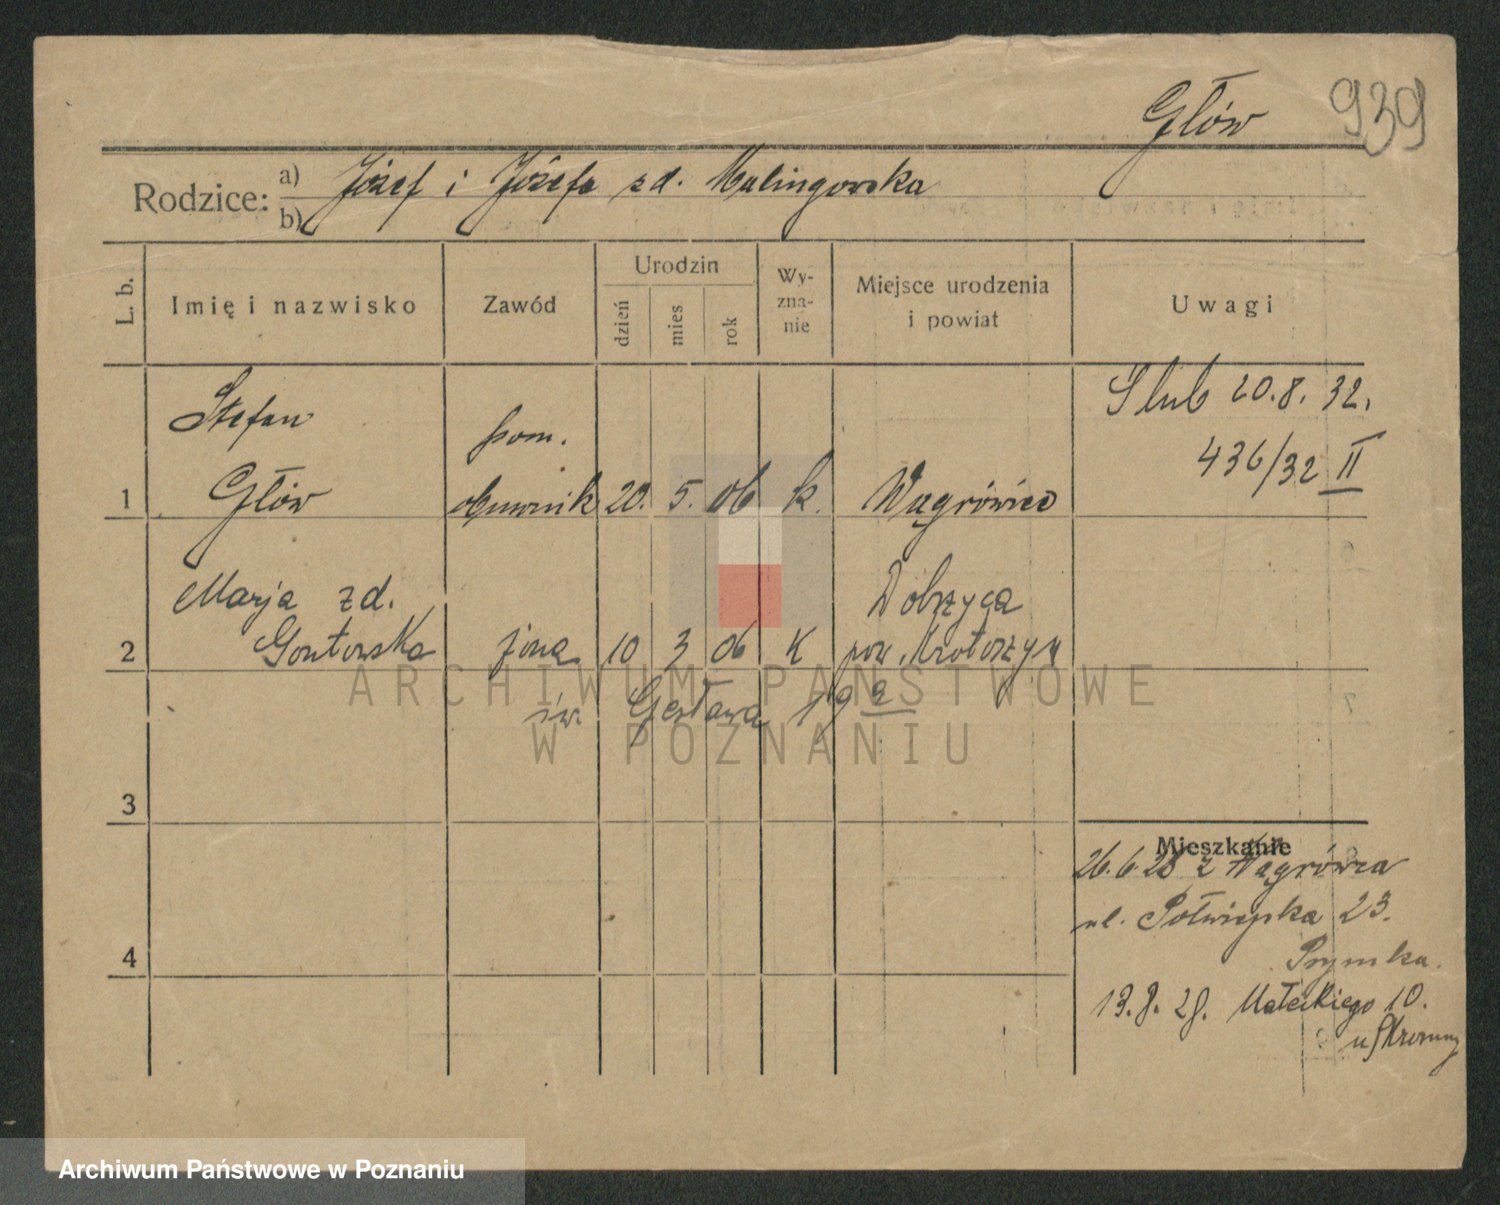 Głów 939
Rodzice: a) Józef i Józefa zd. Malingowska
b)
L. b. Imię i nazwisko Zawód Urodzin dzień mies rok Wyznanie Miejsce urodzenia i powiat Uwagi
Ślub 20.8.32.
436/32 II
Stefan pom.
1 Głów 20. 5. 06 k. Wągrówiec
Marja zd. Dobrzyca
2 żona 10 3 06 K pow. Krotoszyn
św. 19a
3
Mieszkanie
26.6.28 z Wągrówca
ul. 23.
4
13. 28. Małeckiego 10.
ARCHIWUM PAŃSTWOWE
W POZNANIU
Archiwum Państwowe w Poznaniu